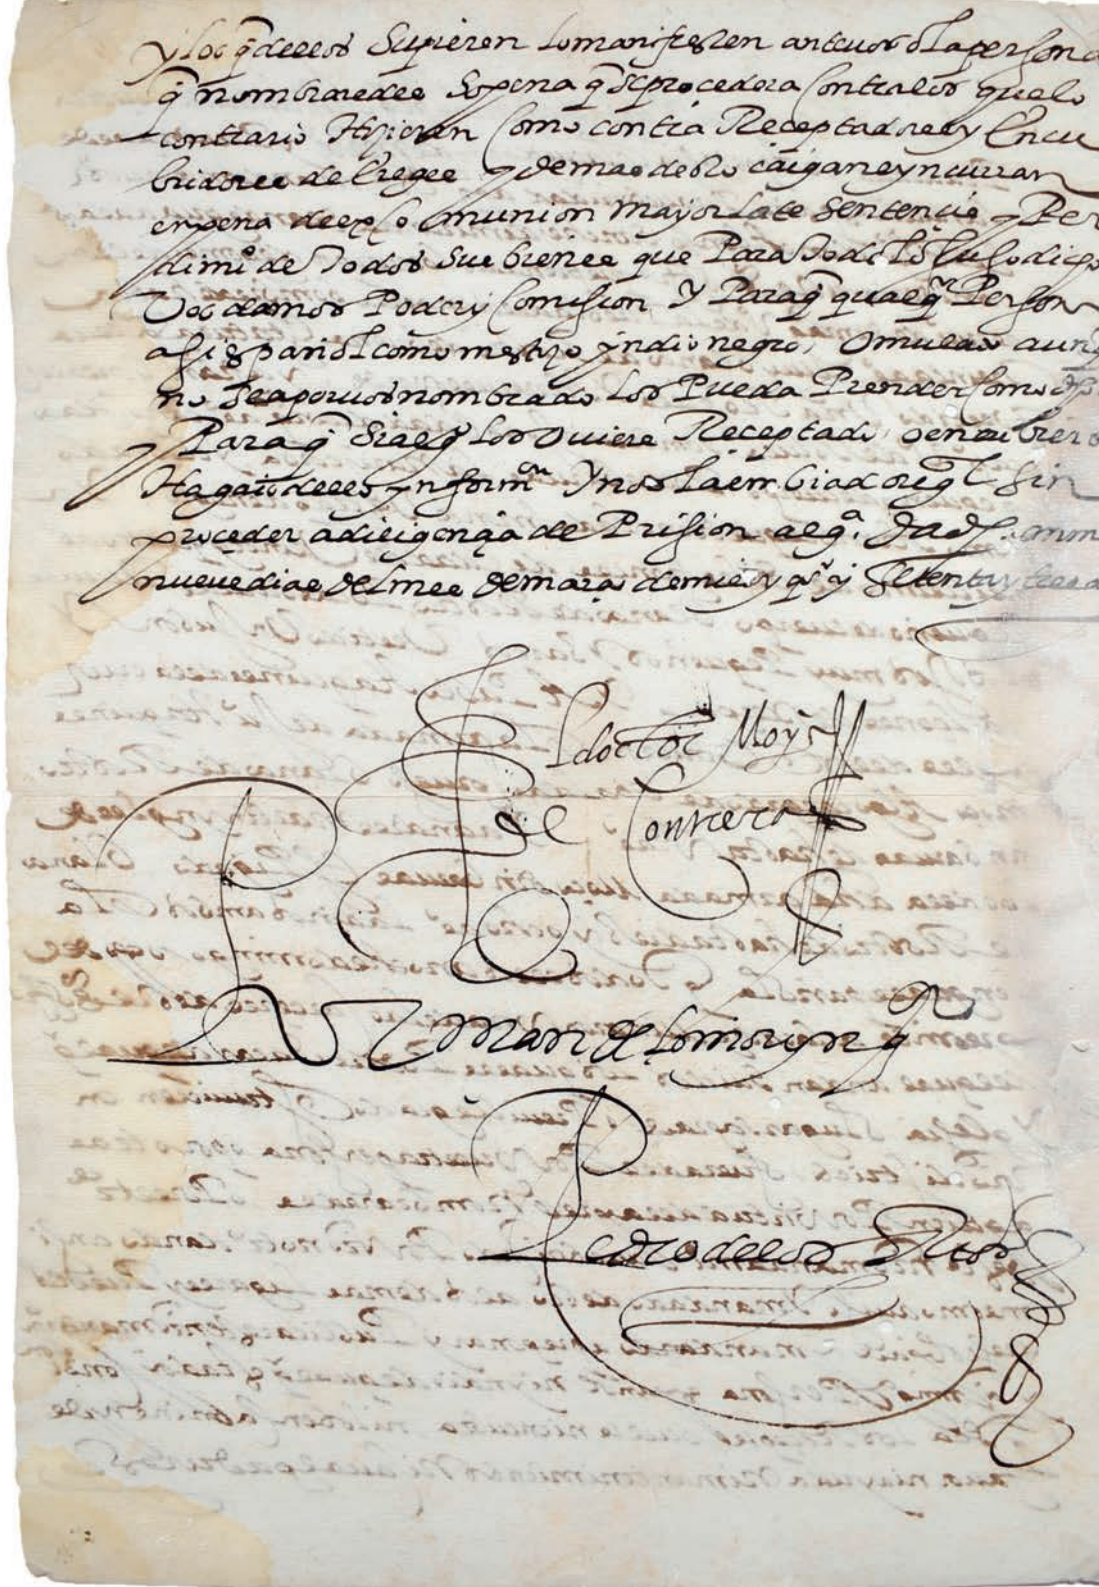 y los q̃ dellos Supieren lo manifiesten ante vos o la persona
q̃ nombraredes So pena q̃ Se procedera Contra los que lo
contrario Hizieren Como contra Receptadores y Encu
bridores de Ereges y demas desto caigan e yncurran
en pena de excomunion mayor late Sententie y Per
dimi.º de Todos Sus bienes que Para Todo lo Susodicho
Vos damos Poder y Comision Y Para q̃ qualq.r Person
asi español como mestizo yndio negro, O mulato aunq̃
no Sea por vos nombrado los Pueda Prender Como
Para q̃ Si alg.º los oviere Receptado o encubiero
Hagais dello ynform.on Y nos la embiad oreg.l Sin
proceder a diligençia de Prision alg.ª. Dad.
nueve dias del mes de março de mill y q.os y Setenta y tres a
El doctor Moya
de Contreras
Por man.do del s.or ynq.or
Pedro de los Rios